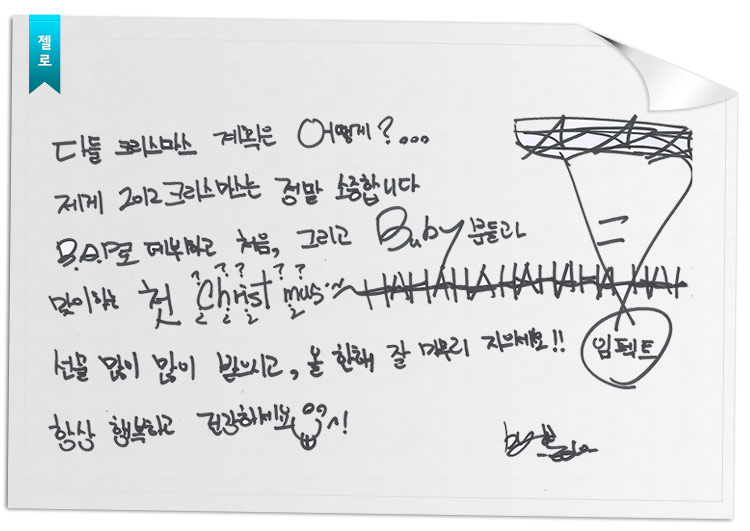 젤로
다들 크리스마스 계획은 어떻게?...
제게 2012 크리스마스는 정말 소중합니다
B.A.P로 데뷔하고 처음, 그리고 Baby 분들과
맞이하는 첫 Christmas~
선물 많이 많이 받으시고, 올 한해 잘 마무리 지으세요!!
임펙트
항상 행복하고 건강하세요~!
by